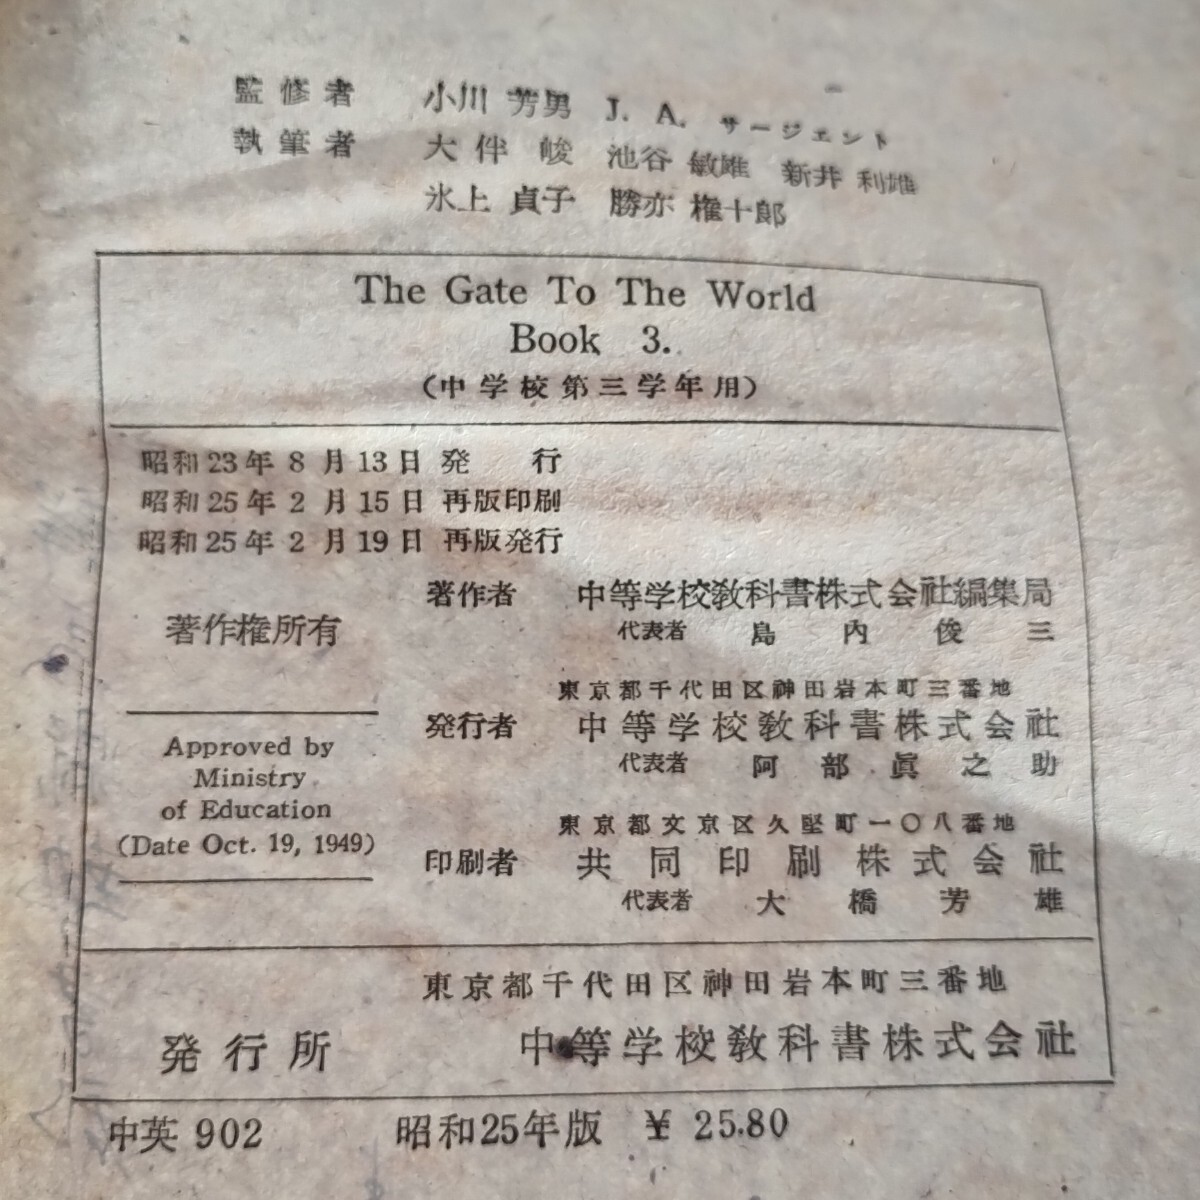 監修者 小川 芳男 J. A. サージェント
執筆者 大伴 峻 池谷 敏雄 新井 利雄
氷上 貞子 勝亦 権十郎
The Gate To The World
Book 3.
(中学校第三学年用)
昭和23年8月13日 発行
昭和25年2月15日 再版印刷
昭和25年2月19日 再版発行
著作権所有
Approved by
Ministry
of Education
(Date Oct. 19, 1949)
著作者 中等学校教科書株式会社編集局
代表者 島内俊三
東京都千代田区神田岩本町三番地
発行者 中等学校教科書株式会社
代表者 阿部眞之助
東京都文京区久堅町一〇八番地
印刷者 共同印刷株式会社
代表者 大橋芳雄
東京都千代田区神田岩本町三番地
発行所 中等学校教科書株式会社
中英 902 昭和25年版 ¥ 25.80